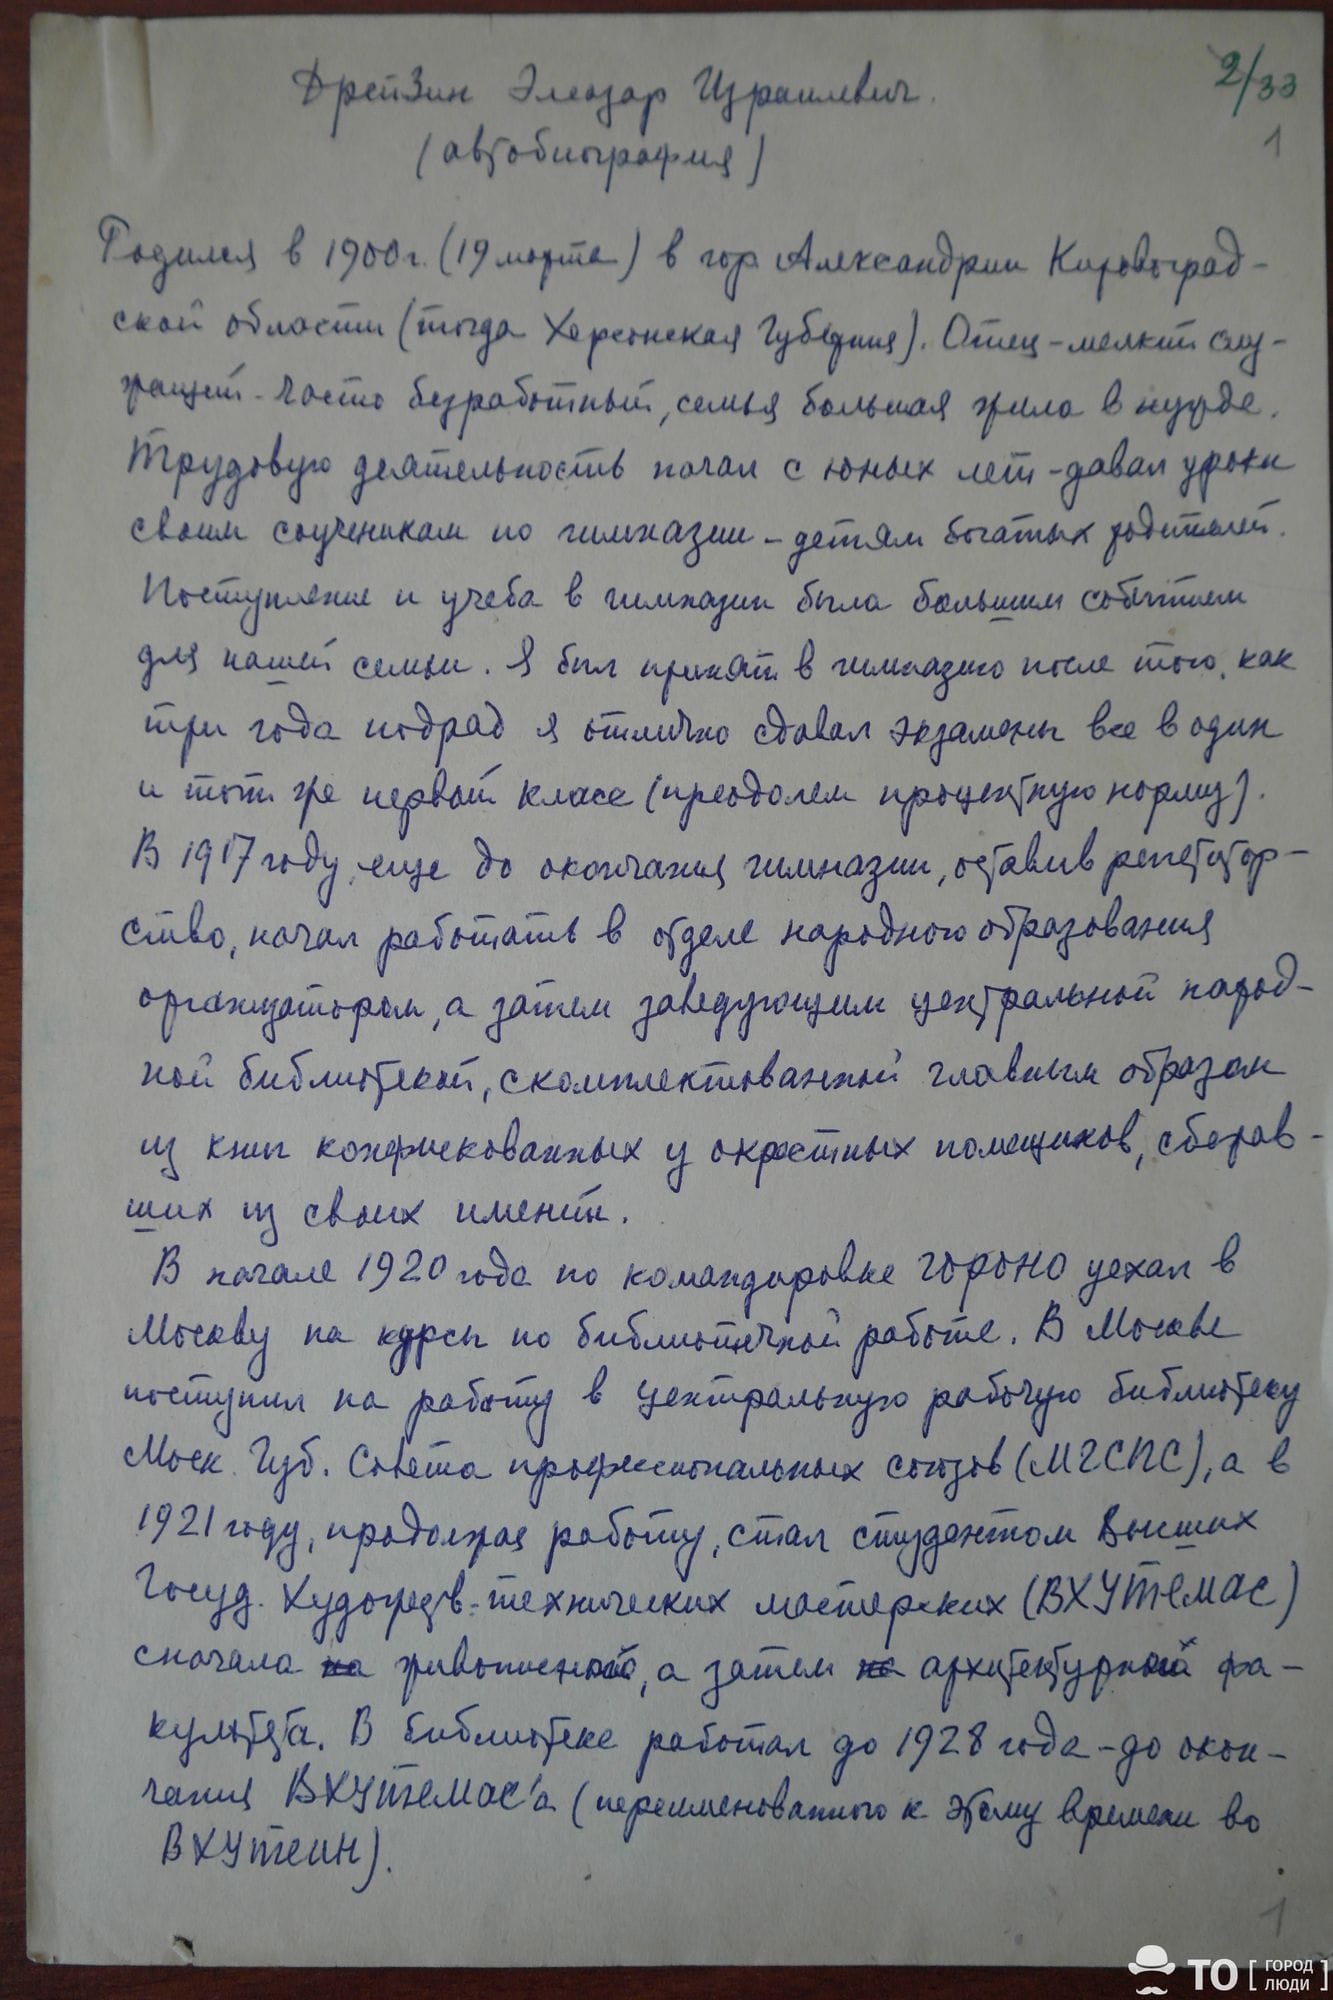 Дрейзин Элеазар Израилевич.
(автобиография)
2/33
1
Родился в 1900 г. (19 марта) в гор Александрии Кировоград-
ской области (тогда Херсонская губерния). Отец – мелкий слу-
жащий – часто безработный, семья большая жила в нужде.
Трудовую деятельность начал с юных лет – давал уроки
своим соученикам по гимназии – детям богатых родителей.
Поступление и учеба в гимназии была большим событием
для нашей семьи. Я был принят в гимназию после того, как
три года подряд я отлично сдавал экзамены все в один
и тот же первый класс (преодолем процентную норму).
В 1917 году, еще до окончания гимназии, оставив репетитор-
ство, начал работать в отделе народного образования
организатором, а затем заведующим центральной народ-
ной библиотекой, скомплектованной главным образом
из книг конфискованных у окрестных помещиков, сбежав-
ших из своих имений.
В начале 1920 года по командировке ГОРОНО уехал в
Москву на курсы по библиотечной работе. В Москве
поступил на работу в центральную рабочую библиотеку
Моск. Губ. Совета профессиональных союзов (МГСПС), а в
1921 году, продолжая работу, стал студентом Высших
Госуд. Художеств-технических мастерских (ВХУТЕМАС)
сначала на живописного, а затем на архитектурной фа-
культета. В библиотеке работал до 1928 года – до окон-
чания ВХУТЕМАС'а (переименованного к этому времени во
ВХУТЕИН).
1
ТО [ГОРОД
ЛЮДИ]